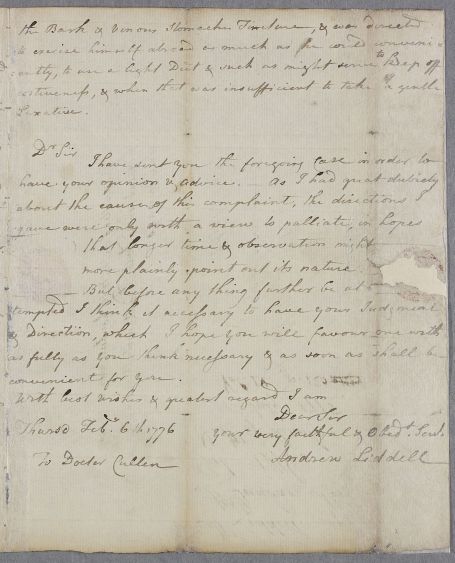 the Bark & Vinous Stomachic Tincture, & was directed
to exercise himself abroad as much as he could conveni-
ently, to use a light Diet & such as might serve to keep off
costiveness, & when that was insufficient to take a gentle
Laxative.
Dr Sir
I have sent you the foregoing case in order to
have your opinion & advice. As I had great dubiety
about the cause of this complaint, the directions I
gave were only with a view to palliate, in hopes
that longer time & observation might
more plainly point out its nature.
But before any thing further be at-
tempted I think it necessary to have your Judgment
& Direction, which I hope you will favour me with
as fully as you think necessary & as soon as shall be
convenient for you.
With best wishes & greatest regard I am
Dear Sir
Thurso Feby. 6th 1776 your very faithful & Obedt. Servt.
To Doctor Cullen Andrew Liddell